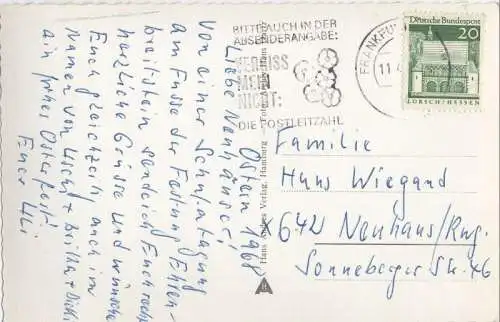 Ostern 1968
Liebe Neuhäuser!
Von einer Schultagung
am Fusse der Festung Ehren-
breitstein sende ich Euch recht
herzliche Grüsse und wünsche
Euch gleichzeitig auch im
Namen von Uschi + Brilka + Dicki
ein frohes Osterfest!
Euer Uli
Hans Verlag, Hamburg
BITTE AUCH IN DER
ABSENDERANGABE:
VERGISS
MEIN
NICHT:
DIE POSTLEITZAHL
FRANKFU
11.
Deutsche Bundespost
20
LORSCH/HESSEN
Familie
Hans Wiegand
X642 Neuhaus/Rwg.
Sonneberger Str. 46